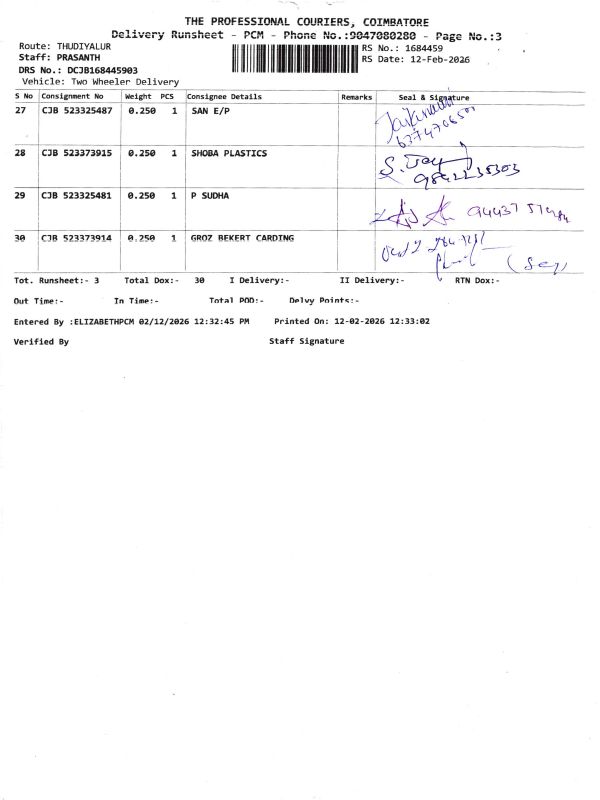 THE PROFESSIONAL COURIERS, COIMBATORE
Delivery Runsheet - PCM - Phone No.:9047080280 - Page No.:3
Route: THUDIYALUR
RS No.: 1684459
Staff: PRASANTH
RS Date: 12-Feb-2026
DRS No.: DCJB168445903
Vehicle: Two Wheeler Delivery
S No Consignment No Weight PCS Consignee Details Remarks Seal & Signature
27 CJB 523325487 0.250 1 SAN E/P
28 CJB 523373915 0.250 1 SHOBA PLASTICS
29 CJB 523325481 0.250 1 P SUDHA
30 CJB 523373914 0.250 1 GROZ BEKERT CARDING
Tot. Runsheet:- 3 Total Dox:- 30 I Delivery:- II Delivery:- RTN Dox:-
Out Time:- In Time:- Total POD:- Delvy Points:-
Entered By :ELIZABETHPCM 02/12/2026 12:32:45 PM Printed On: 12-02-2026 12:33:02
Verified By Staff Signature